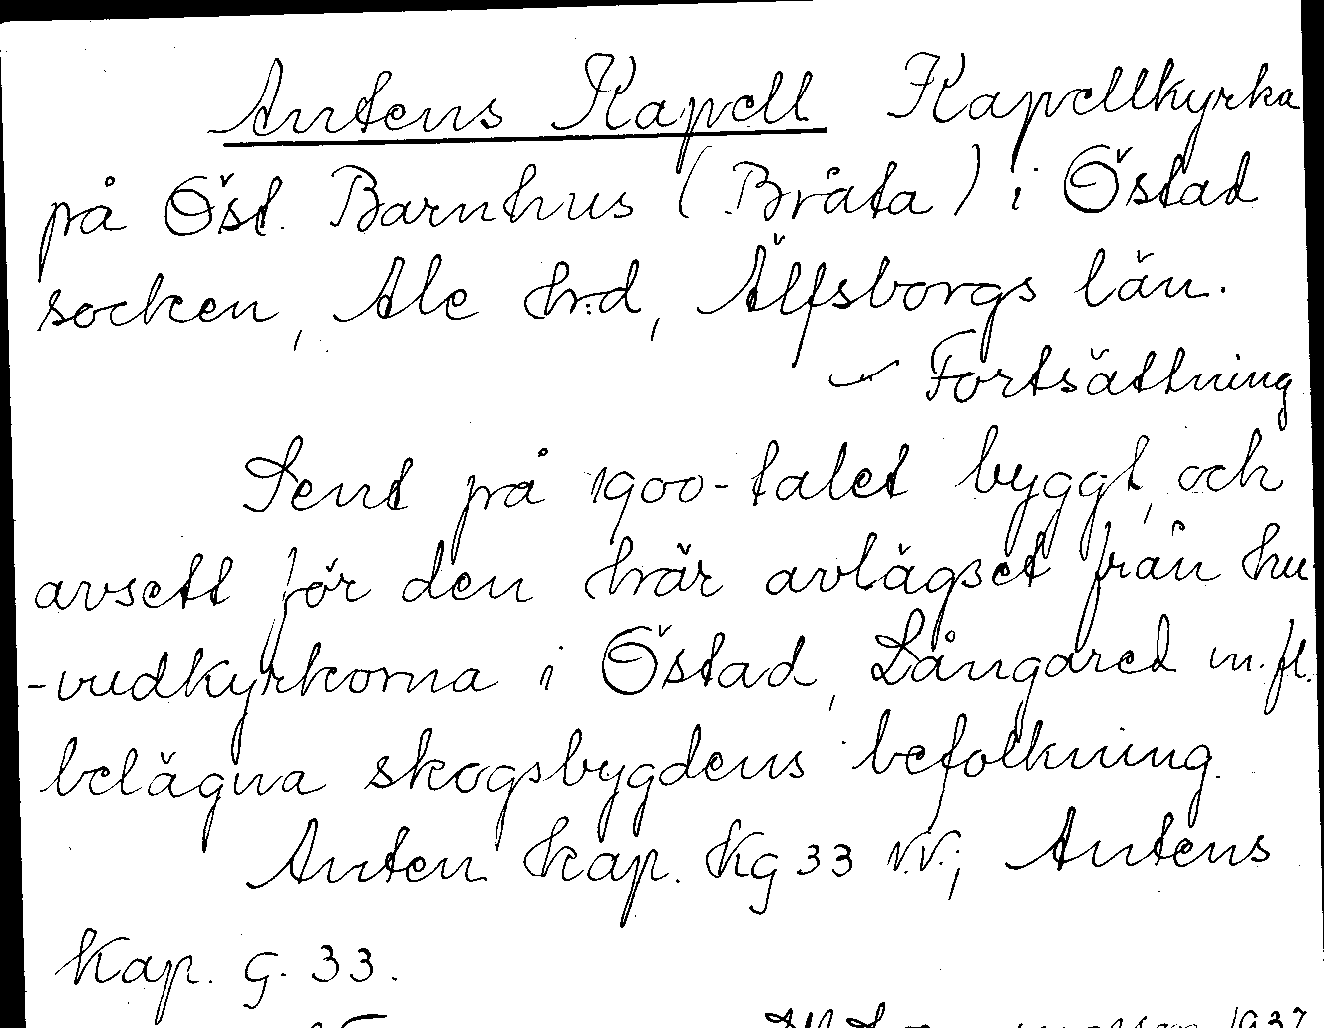 Antens Kapell Kapellkyrka
på Öst. Barnhus (Bråta) i Östad
socken, Ale hrd, Älfsborgs län.
Fortsättning
Sent på 1900-talet byggt, och
avsett för den här avlägset från hu-
-vudkyrkorna i Östad, Långared m.fl.
belägna skogsbygdens befolkning.
Anten kap. Kg 33 N.V.; Antens
Kap. G. 33.
1937